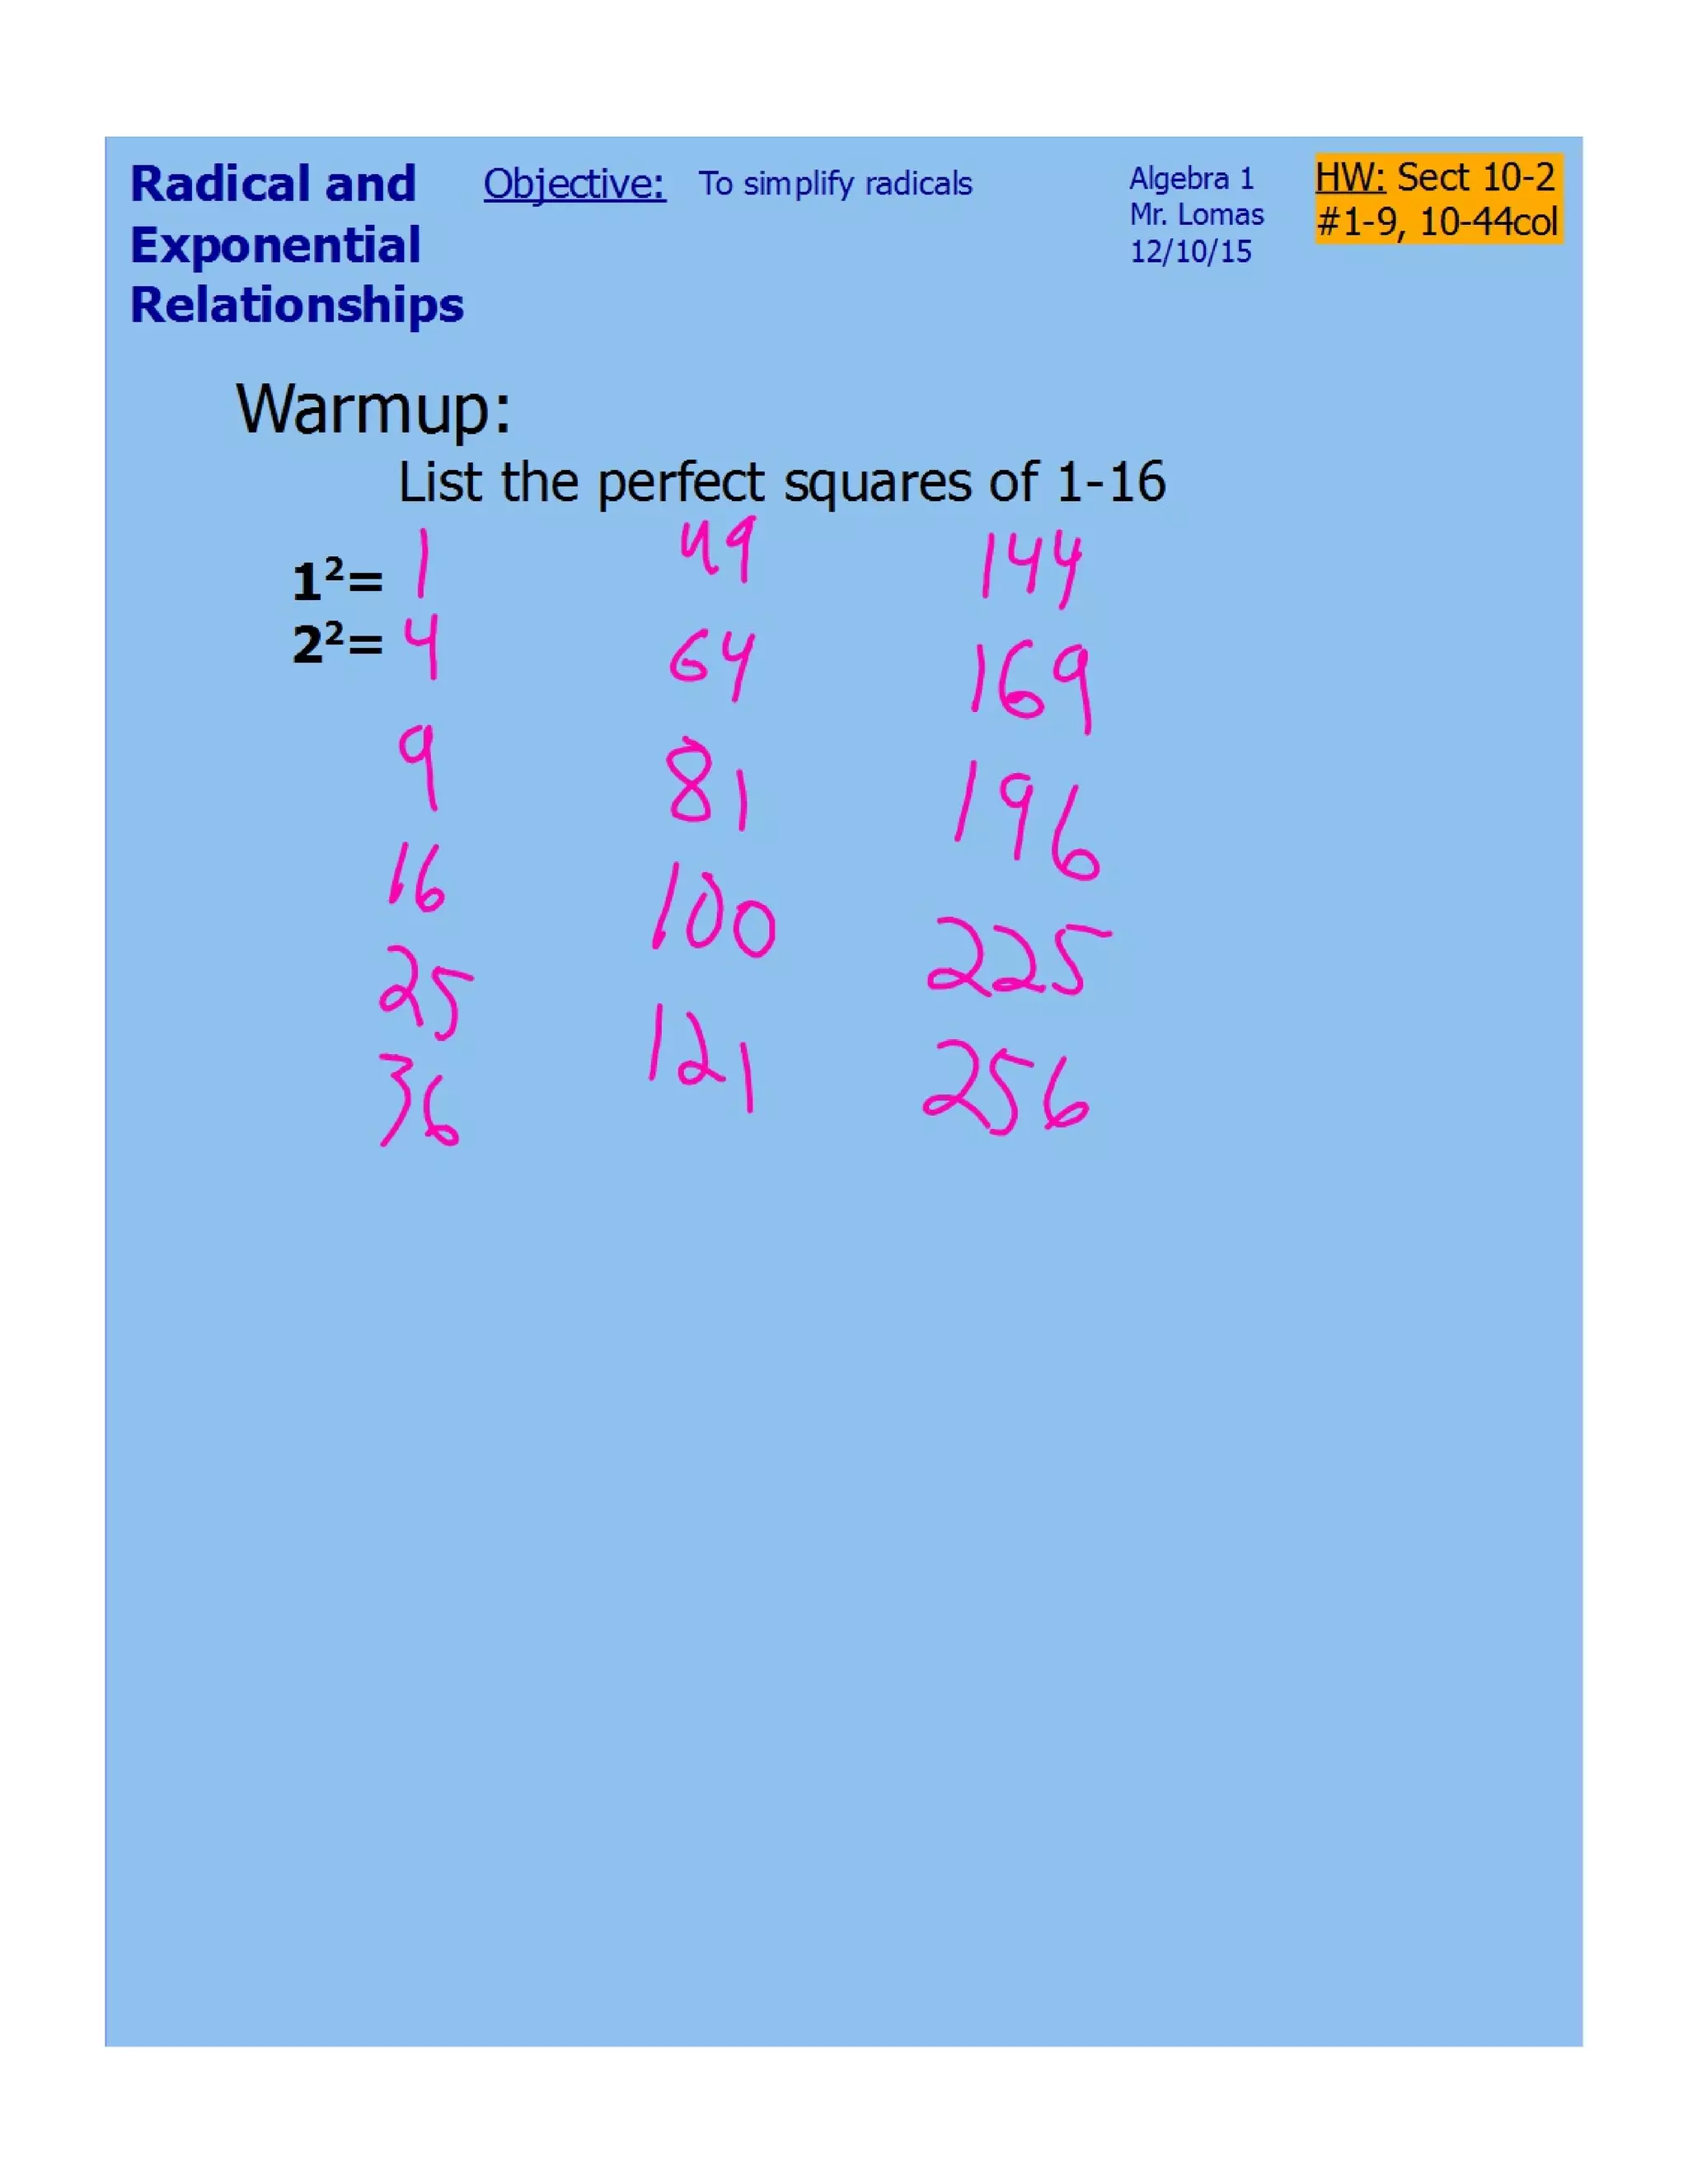 Radical and
Exponential
Relationships
Objective: To simplify radicals
Algebra 1
Mr. Lomas
12/10/15
HW: Sect 10-2
#1-9, 10-44col
Warmup:
List the perfect squares of 1-16
1²= 1
2²= 4
9
16
25
36
49
64
81
100
121
144
169
196
225
256